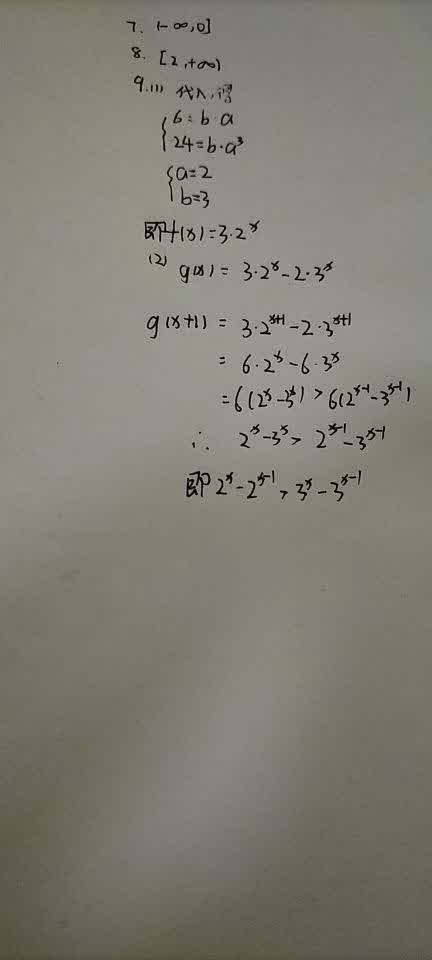 7. (-∞,0]
8. [2,+∞)
9.(1) 代入,得
{6=b·a
24=b·a³
{a=2
b=3
即f(x)=3·2ˣ
(2) g(x)=3·2ˣ-2·3ˣ
g(x+1)=3·2ˣ⁺¹-2·3ˣ⁺¹
=6·2ˣ-6·3ˣ
=6(2ˣ-3ˣ)>6(2ˣ⁻¹-3ˣ⁻¹)
∴ 2ˣ-3ˣ>2ˣ⁻¹-3ˣ⁻¹
即2ˣ-2ˣ⁻¹>3ˣ-3ˣ⁻¹